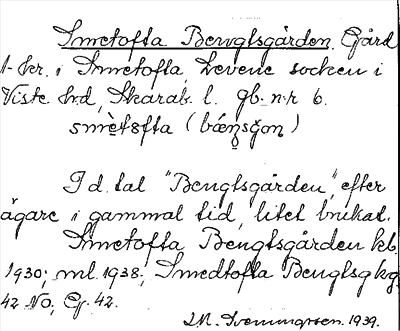 Smetofta Bengtsgården. Gård
1 kr. i Smetofta, Levene socken i
Viste hrd, Skarab. l. gb. nr 6.
smètofta (bǽŋsgɔn)
I d. tal "Bengtsgården", efter
ägare i gammal tid, litet brukat.
Smetofta Bengtsgården kb.
1930; ml. 1938; Smedtofta Bengtsg kg.
42 No, Cg. 42.
1939.